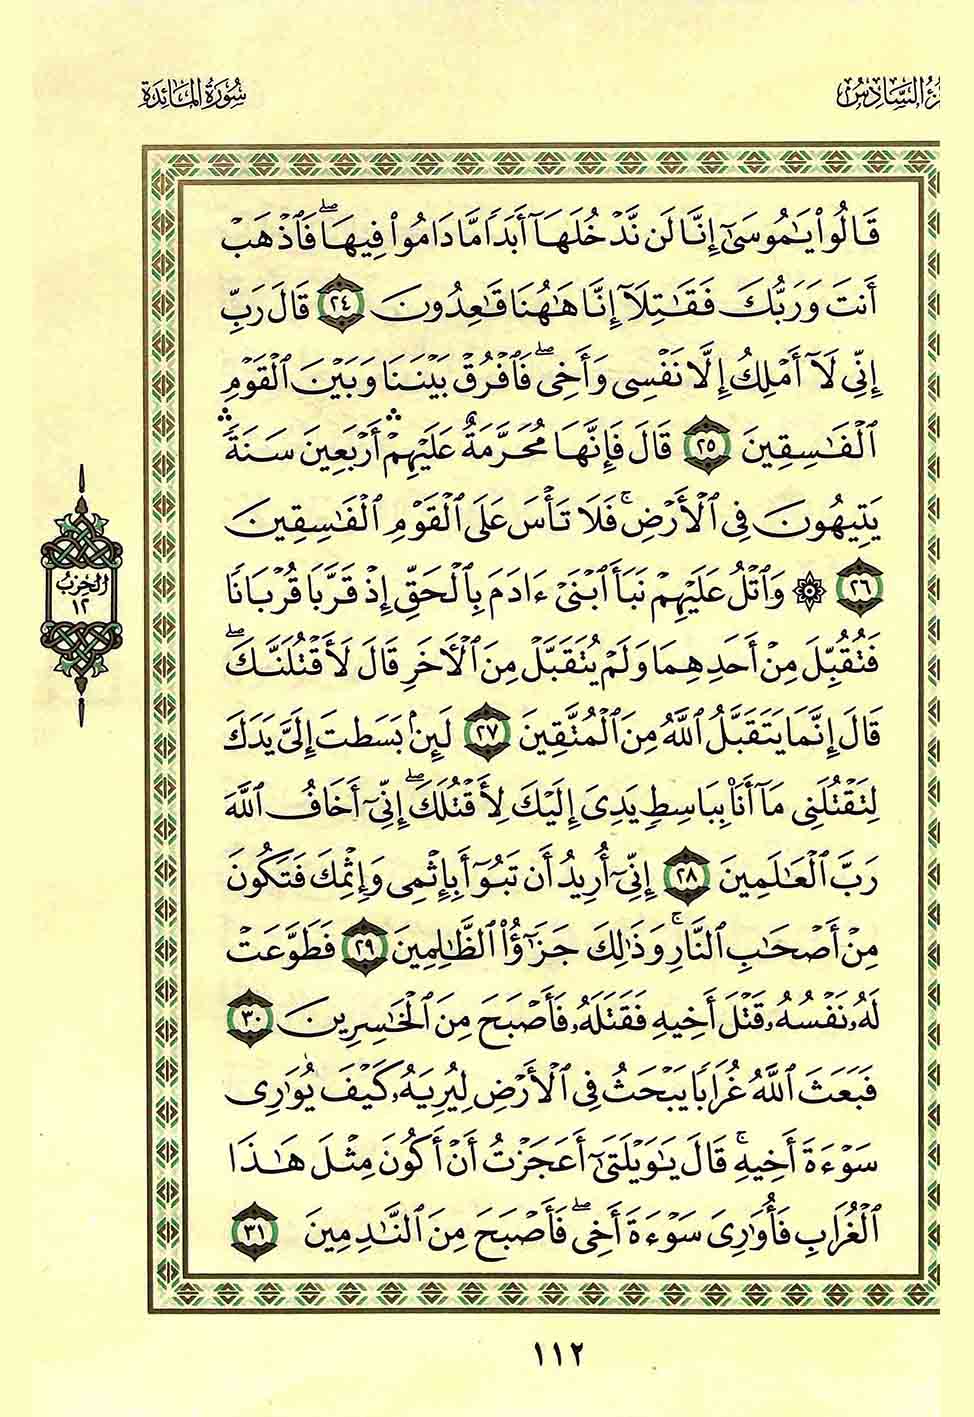 سُورَةُ المَائِدَةِ
السَّادِسُ
قَالُوا۟ يَـٰمُوسَىٰٓ إِنَّا لَن نَّدْخُلَهَآ أَبَدًا مَّا دَامُوا۟ فِيهَا ۖ فَٱذْهَبْ
أَنتَ وَرَبُّكَ فَقَـٰتِلَآ إِنَّا هَـٰهُنَا قَـٰعِدُونَ ٢٤ قَالَ رَبِّ
إِنِّى لَآ أَمْلِكُ إِلَّا نَفْسِى وَأَخِى ۖ فَٱفْرُقْ بَيْنَنَا وَبَيْنَ ٱلْقَوْمِ
ٱلْفَـٰسِقِينَ ٢٥ قَالَ فَإِنَّهَا مُحَرَّمَةٌ عَلَيْهِمْ ۛ أَرْبَعِينَ سَنَةً ۛ
يَتِيهُونَ فِى ٱلْأَرْضِ ۚ فَلَا تَأْسَ عَلَى ٱلْقَوْمِ ٱلْفَـٰسِقِينَ
٢٦ ۞ وَٱتْلُ عَلَيْهِمْ نَبَأَ ٱبْنَىْ ءَادَمَ بِٱلْحَقِّ إِذْ قَرَّبَا قُرْبَانًا
فَتُقُبِّلَ مِنْ أَحَدِهِمَا وَلَمْ يُتَقَبَّلْ مِنَ ٱلْـَٔاخَرِ قَالَ لَأَقْتُلَنَّكَ ۖ
قَالَ إِنَّمَا يَتَقَبَّلُ ٱللَّهُ مِنَ ٱلْمُتَّقِينَ ٢٧ لَئِنۢ بَسَطتَ إِلَىَّ يَدَكَ
لِتَقْتُلَنِى مَآ أَنَا۠ بِبَاسِطٍ يَدِىَ إِلَيْكَ لِأَقْتُلَكَ ۖ إِنِّىٓ أَخَافُ ٱللَّهَ
رَبَّ ٱلْعَـٰلَمِينَ ٢٨ إِنِّىٓ أُرِيدُ أَن تَبُوٓأَ بِإِثْمِى وَإِثْمِكَ فَتَكُونَ
مِنْ أَصْحَـٰبِ ٱلنَّارِ ۚ وَذَٰلِكَ جَزَٰٓؤُا۟ ٱلظَّـٰلِمِينَ ٢٩ فَطَوَّعَتْ
لَهُۥ نَفْسُهُۥ قَتْلَ أَخِيهِ فَقَتَلَهُۥ فَأَصْبَحَ مِنَ ٱلْخَـٰسِرِينَ ٣٠
فَبَعَثَ ٱللَّهُ غُرَابًا يَبْحَثُ فِى ٱلْأَرْضِ لِيُرِيَهُۥ كَيْفَ يُوَٰرِى
سَوْءَةَ أَخِيهِ ۚ قَالَ يَـٰوَيْلَتَىٰٓ أَعَجَزْتُ أَنْ أَكُونَ مِثْلَ هَـٰذَا
ٱلْغُرَابِ فَأُوَٰرِىَ سَوْءَةَ أَخِى ۖ فَأَصْبَحَ مِنَ ٱلنَّـٰدِمِينَ ٣١
الحِزْبُ
١٢
١١٢